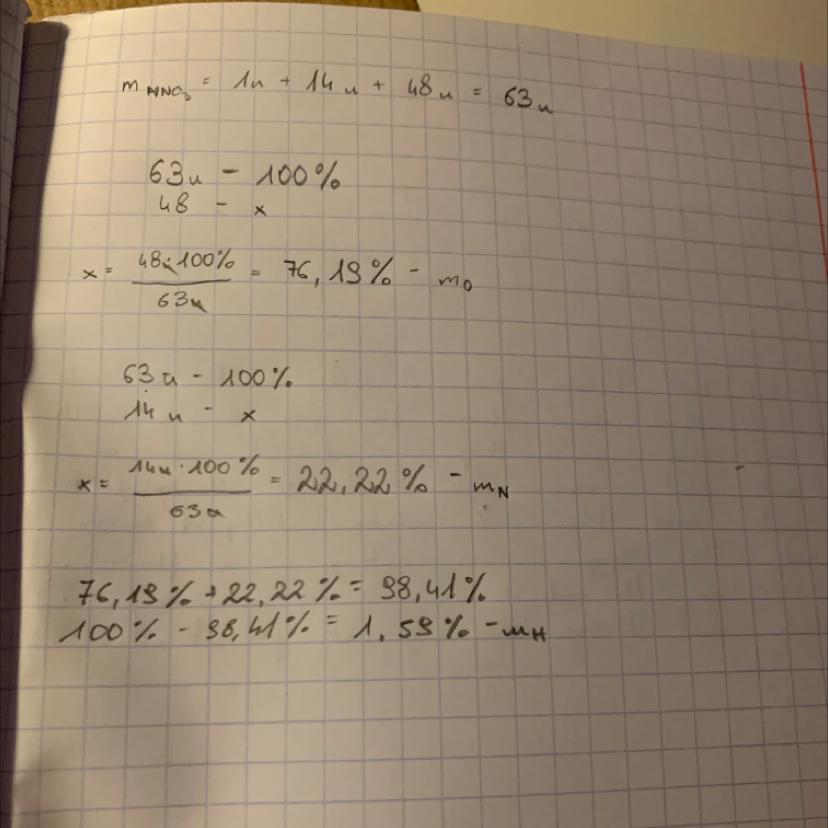 m HNO₃ = 1u + 14u + 48u = 63u
63u - 100%
48 - x
x = 48u·100% / 63u = 76,19% - mO
63u - 100%
14u - x
x = 14u·100% / 63u = 22,22% - mN
76,19% + 22,22% = 98,41%
100% - 98,41% = 1,59% - mH